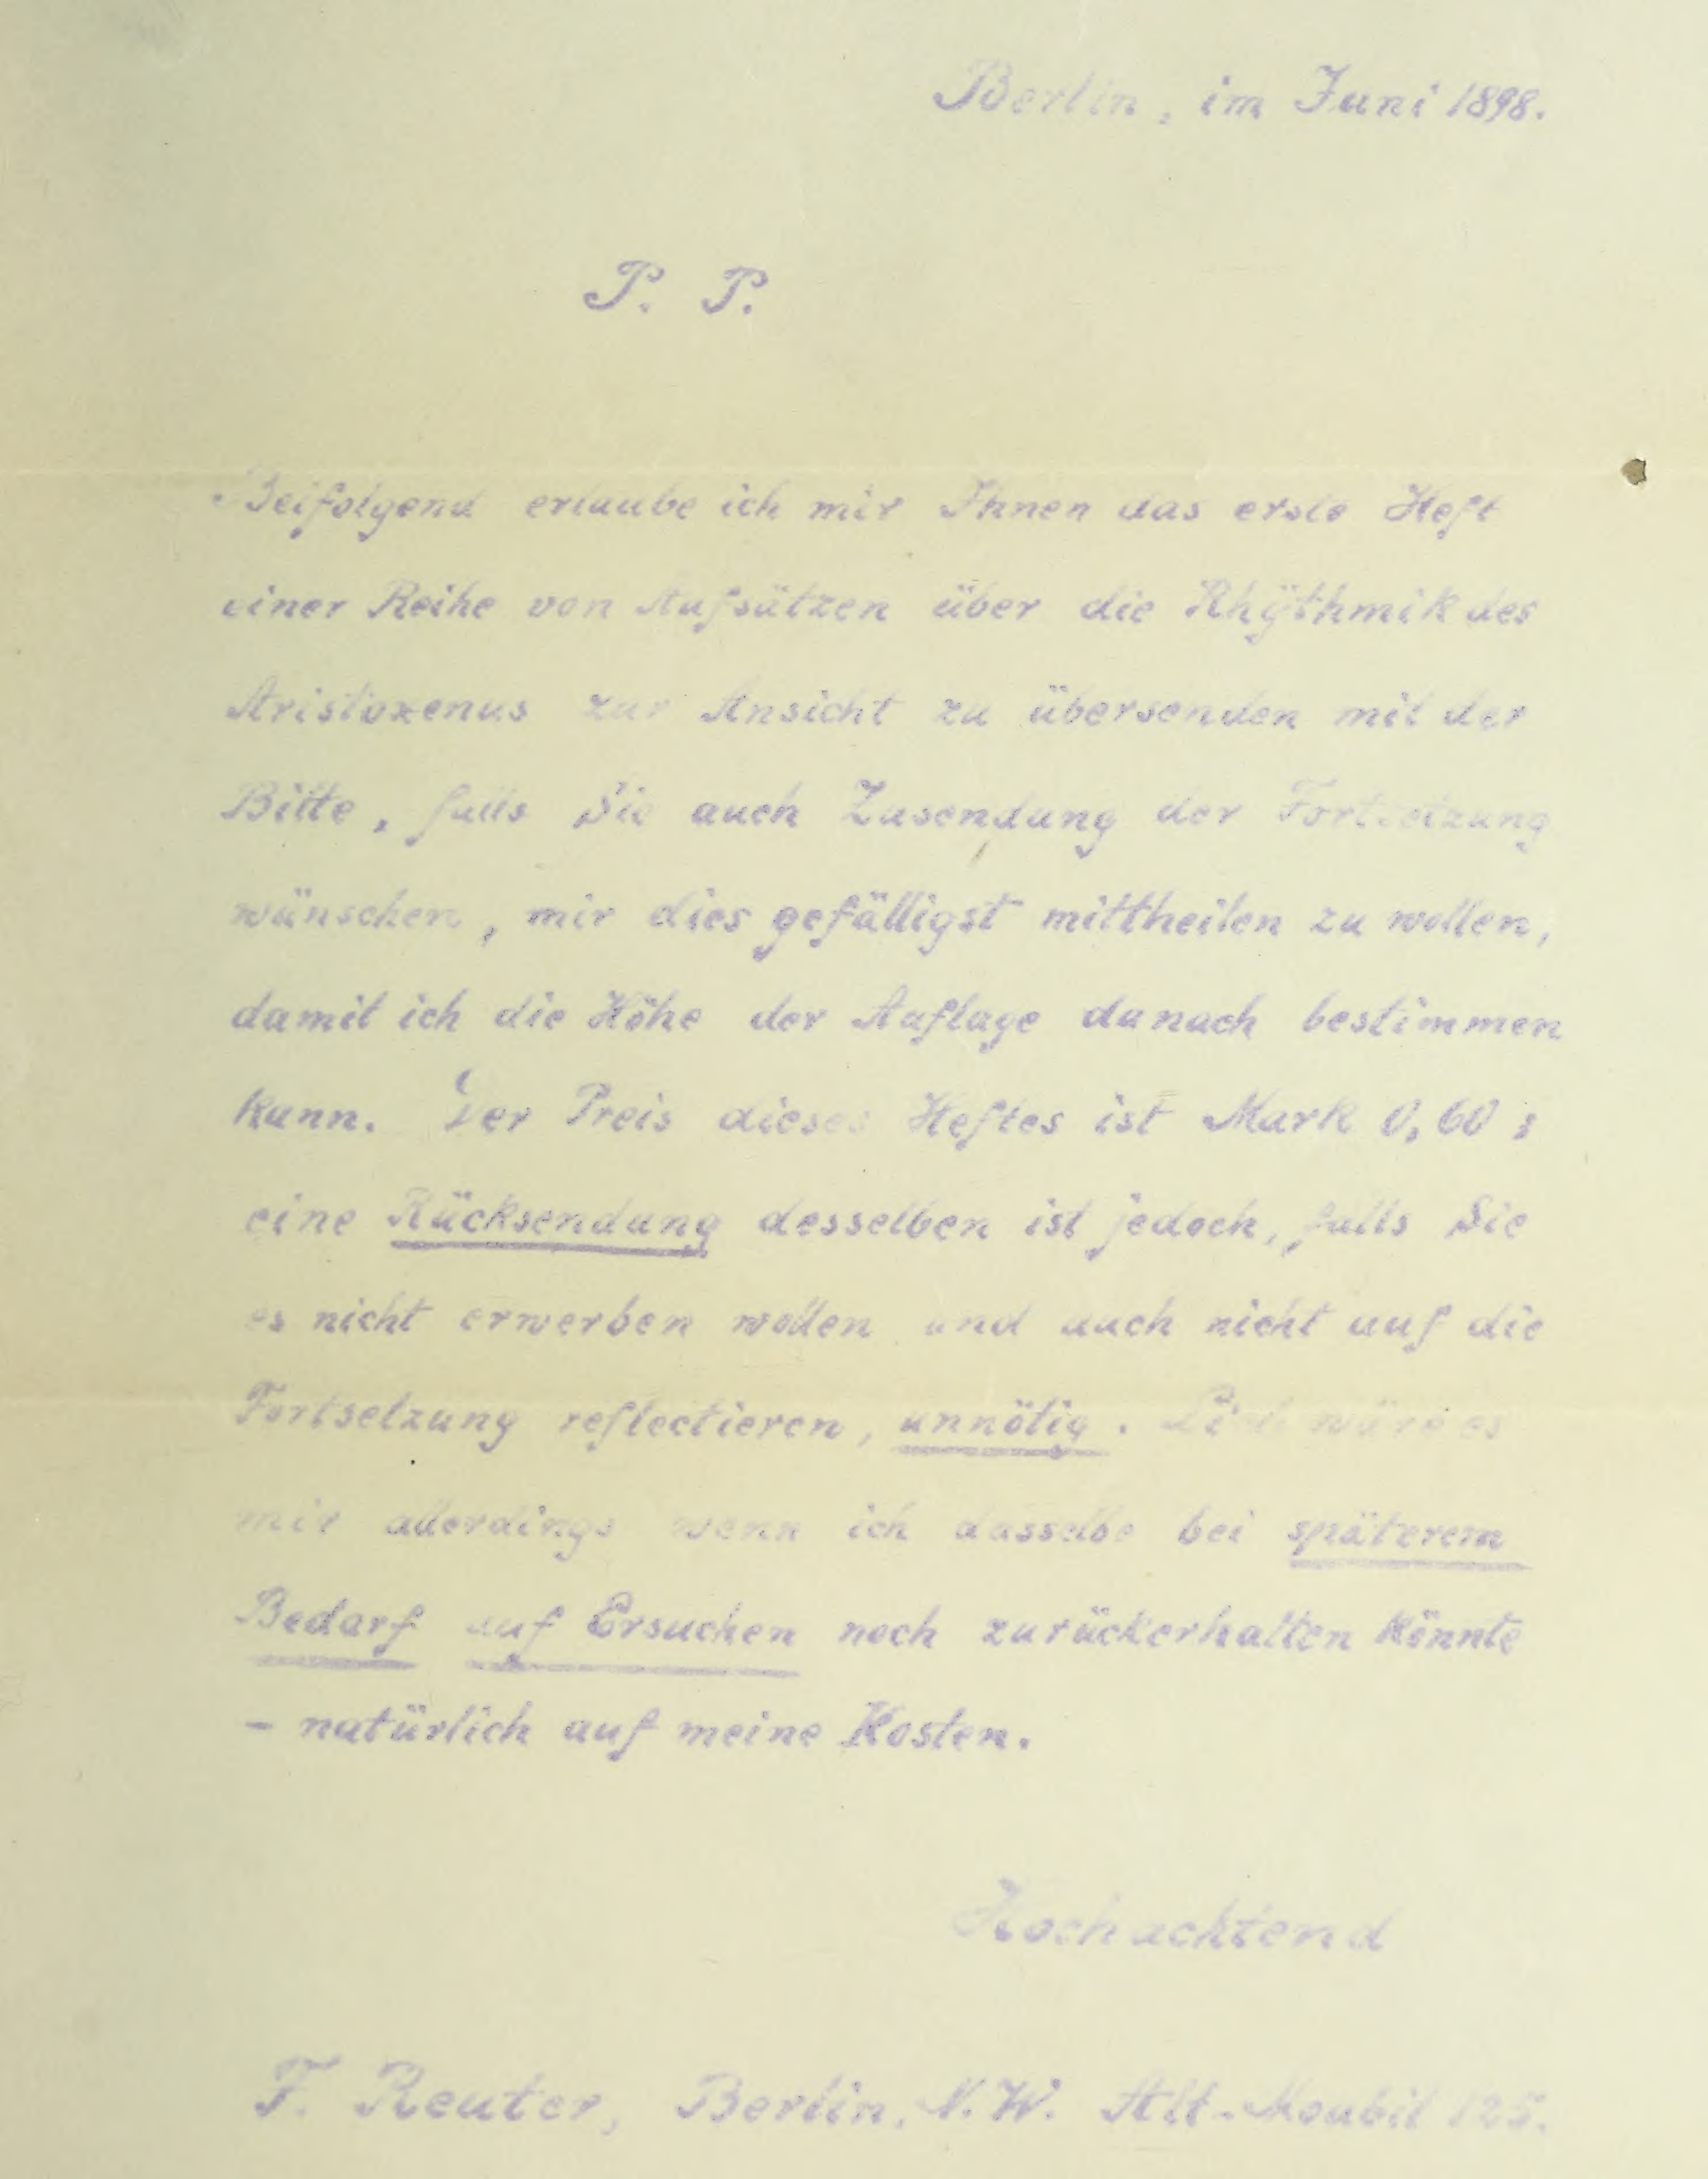 Berlin, im Juni 1898.
P. P.
Beifolgend erlaube ich mir Ihnen das erste Heft
einer Reihe von Aufsätzen über die Rhÿthmik des
Aristoxenus zur Ansicht zu übersenden mit der
Bitte, falls Sie auch Zusendung der Fortsetzung
wünschen, mir dies gefälligst mittheilen zu wollen,
damit ich die Höhe der Auflage danach bestimmen
kann. Der Preis dieses Heftes ist Mark 0,60;
eine Rücksendung desselben ist jedoch, falls Sie
es nicht erwerben wollen und auch nicht auf die
Fortsetzung reflectieren, unnötig. Lieb wäre es
mir allerdings wenn ich dasselbe bei späterem
Bedarf auf Ersuchen noch zurückerhalten könnte
– natürlich auf meine Kosten.
Hochachtend
F. Reuter, Berlin, N.W. Alt-Moabit 125.